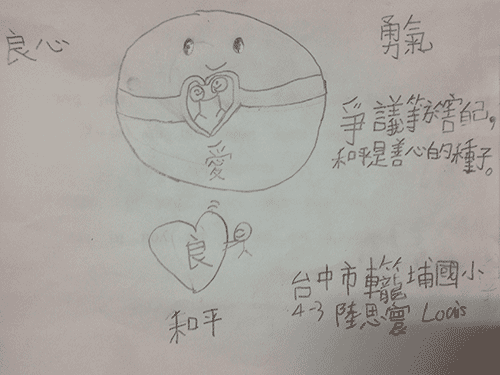 良心
勇氣
爭議等於害己，
和平是善心的種子。
愛
良
和平
台中市車籠埔國小
4-3 陸思寰 Louis